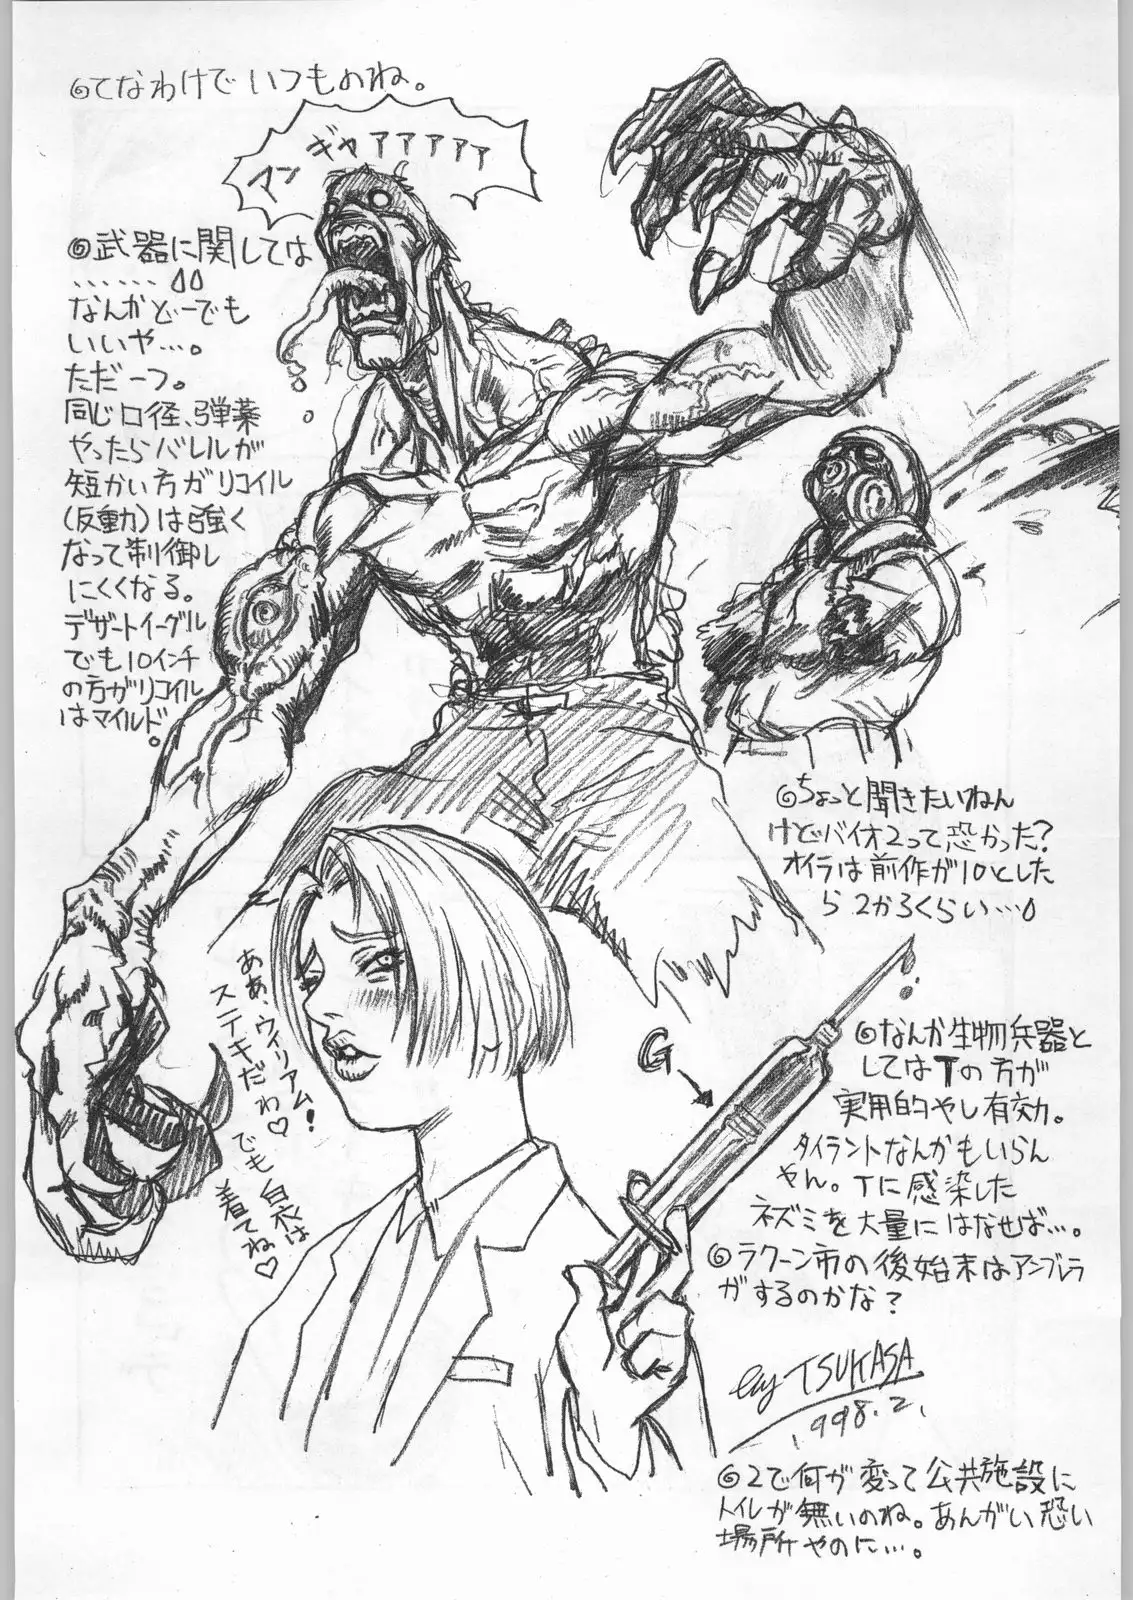 ◎てなわけでいつものね。
ギャアアアアア
マン
◎武器に関しては
……
なんかどーでも
いいや…。
ただ一つ。
同じ口径、弾薬
やったらバレルが
短かい方がリコイル
(反動)は強く
なって制御し
にくくなる。
デザートイーグル
でも10インチ
の方がリコイル
はマイルド。
◎ちょっと聞きたいねん
けどバイオ2って恐かった?
オイラは前作が10としたら
ら2かろくらい…
ああ、ウィリアム!
ステキだわ♡でも白衣は
着てね♡
G
◎なんか生物兵器と
してはTの方が
実用的やし有効。
タイラントなんかもいらん
やん。Tに感染した
ネズミを大量にはなせば…。
◎ラクーン市の後始末はアンブレラ
がするのかな?
by TSUKASA
1998.2.
◎2で何が変って公共施設に
トイレが無いのね。あんがい恐い
場所やのに…。